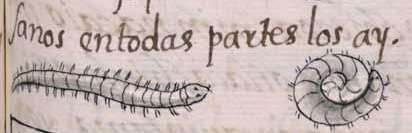 sanos entodas partes los ay.